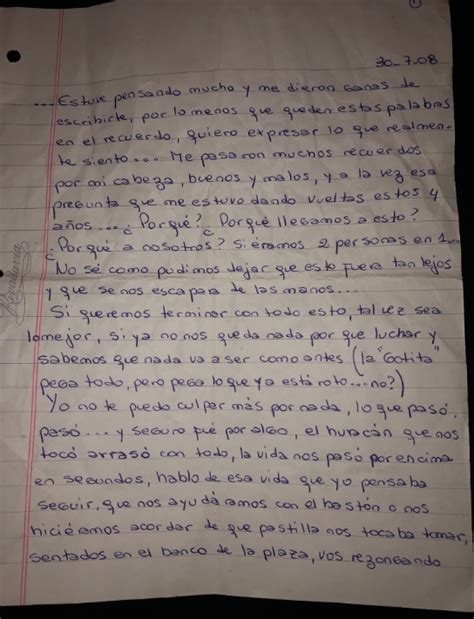 1
30-7-08
...Estuve pensando mucho y me dieron ganas de
escribirte, por lo menos que queden estas palabras
en el recuerdo, quiero expresar lo que realmen-
te siento... Me pasaron muchos recuerdos
por mi cabeza, buenos y malos, y a la vez esa
pregunta que me estuvo dando vueltas estos 4
años... ¿Porqué? ¿Porqué llegamos a esto?
¿Porqué a nosotros? Si éramos 2 personas en 1...
No sé como pudimos dejar que esto fuera tan lejos
y que se nos escapara de las manos...
Si queremos terminar con todo esto, tal vez sea
lo mejor, si ya no nos queda nada por que luchar y
sabemos que nada va a ser como antes (la "Gotita"
pega todo, pero pega lo que ya está roto...no?)
Yo no te puedo culper más por nada, lo que pasó,
pasó... y seguro fué por algo, el huracán que nos
tocó arrasó con todo, la vida nos pasó por encima
en segundos, hablo de esa vida que yo pensaba
seguir, que nos ayudáramos con el bastón o nos
hiciéramos acordar de que pastilla nos tocaba tomar,
sentados en el banco de la plaza, vos rezongando